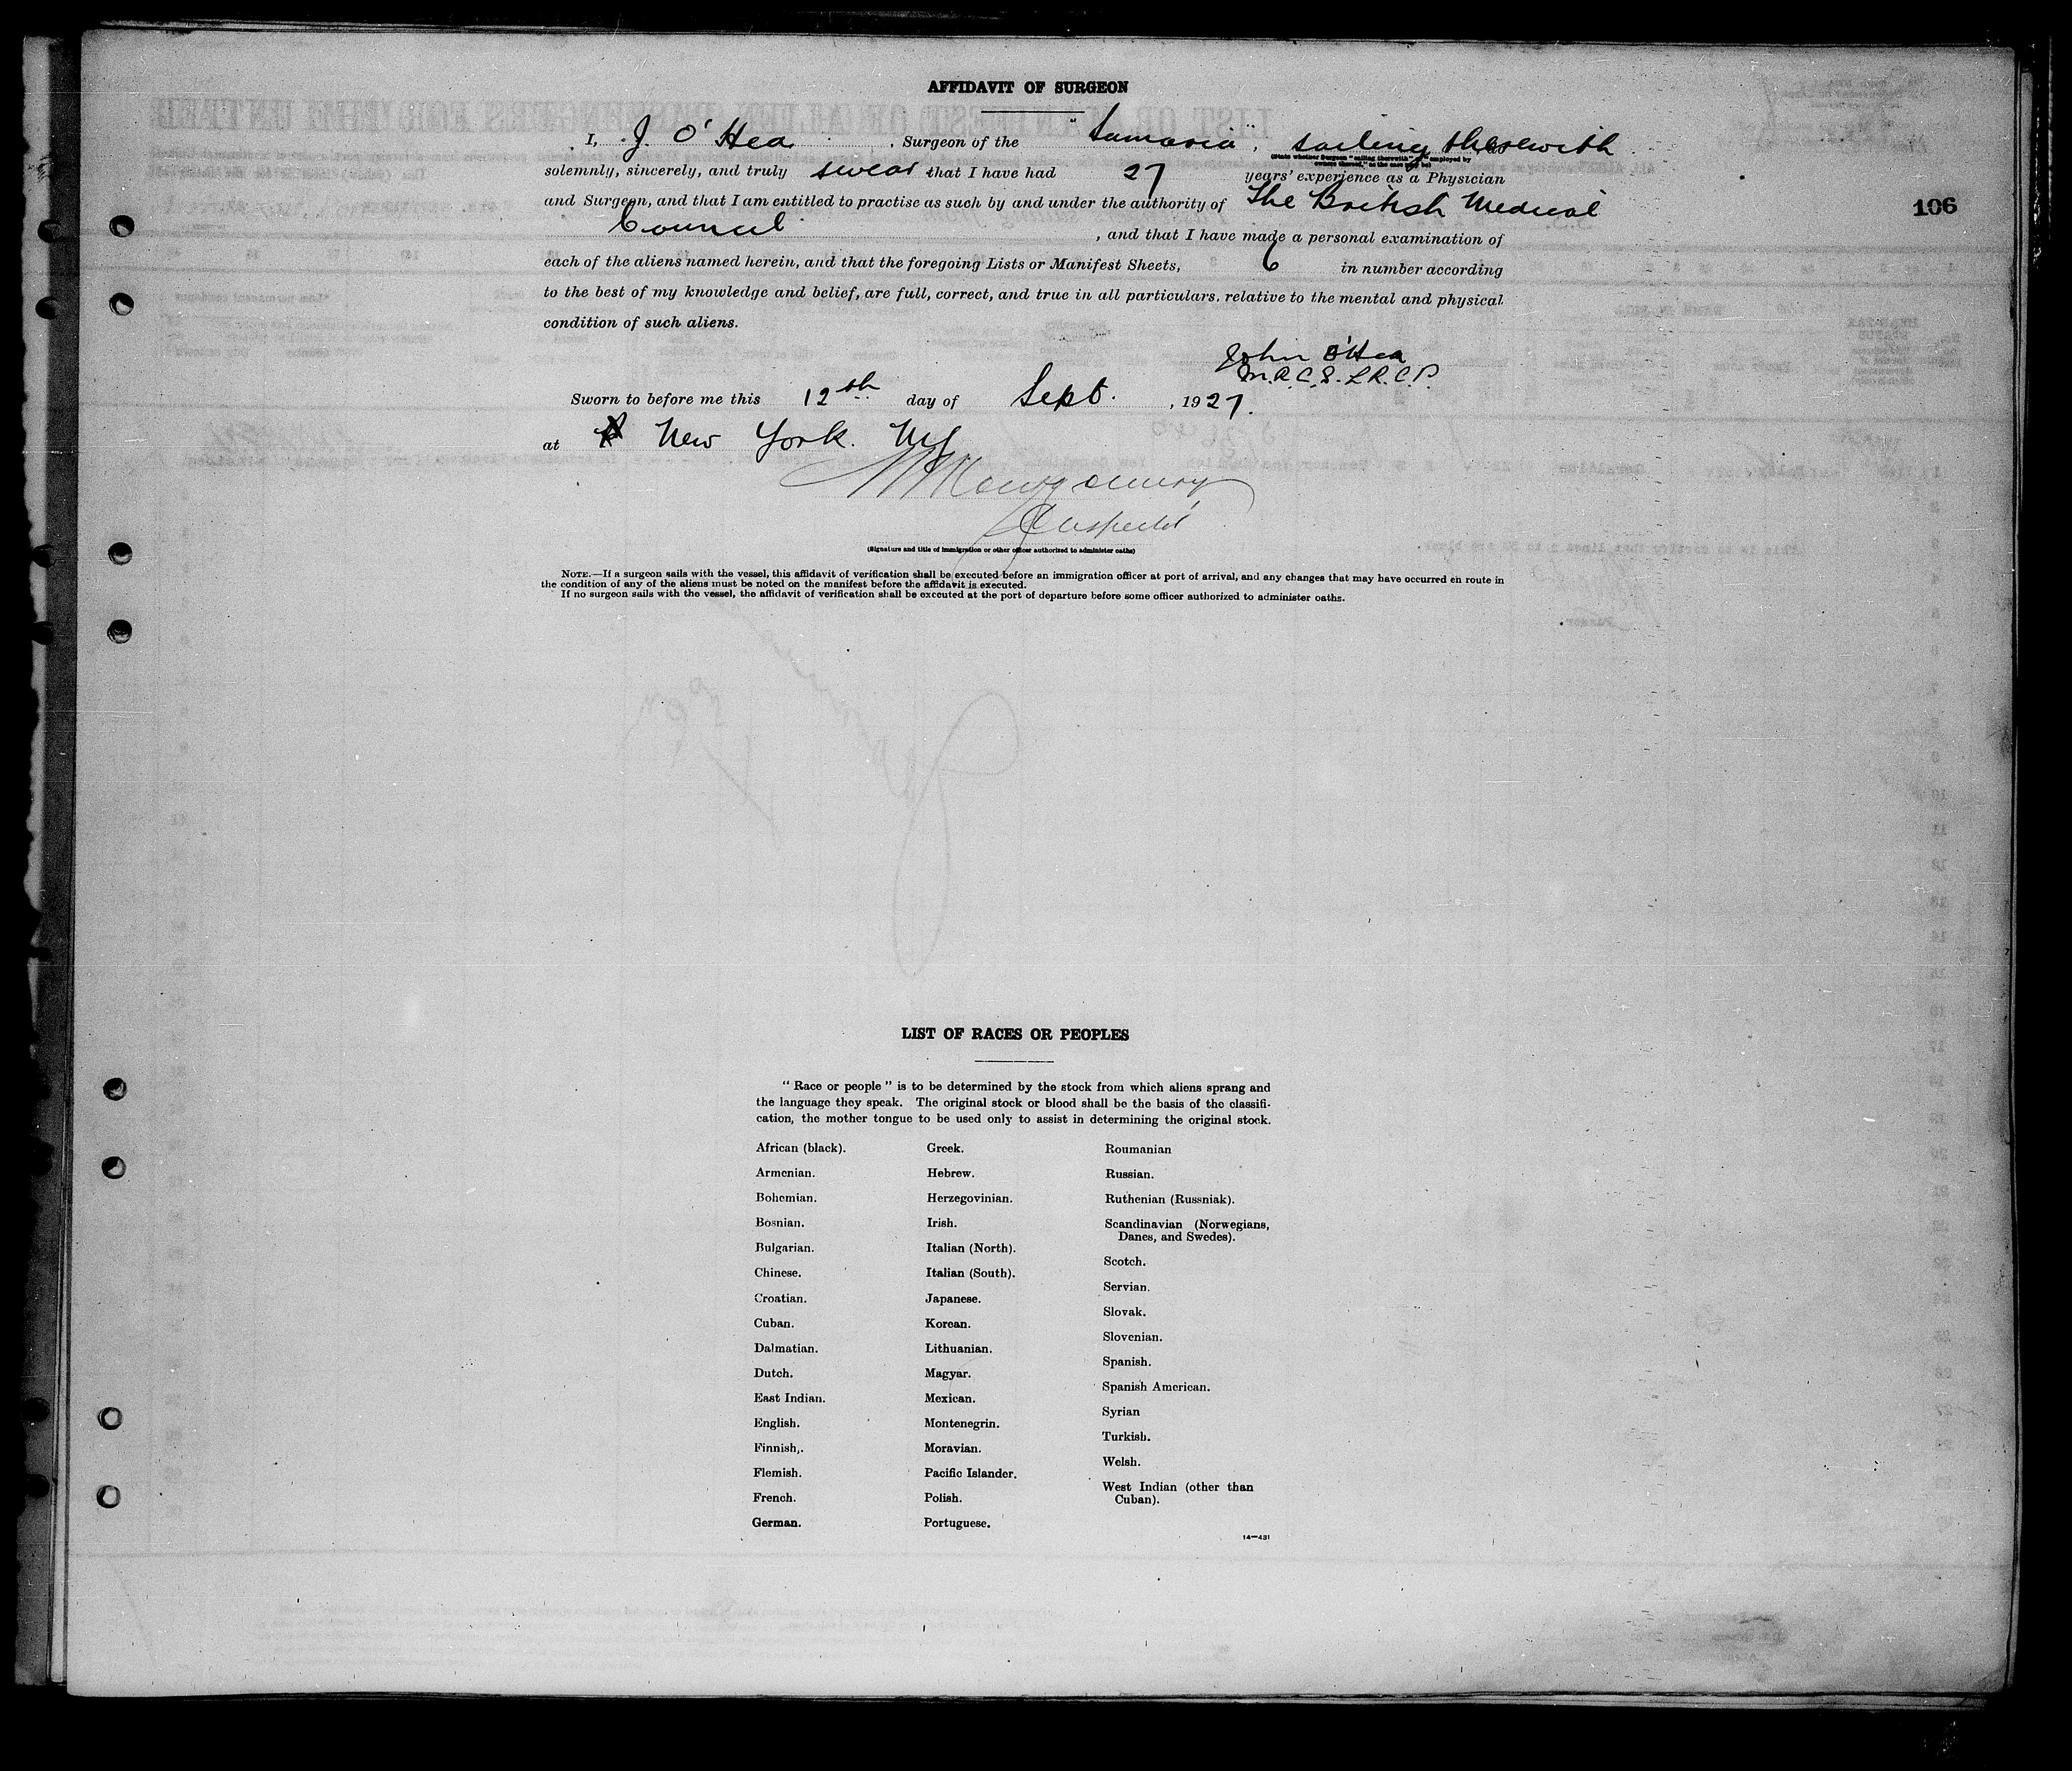 AFFIDAVIT OF SURGEON
I, J. O'Hea, Surgeon of the "Samaria", sailing therewith
(State whether Surgeon "sailing therewith" or "employed by
owners thereof," as the case may be)
solemnly, sincerely, and truly swear that I have had 27 years' experience as a Physician
and Surgeon, and that I am entitled to practise as such by and under the authority of The British Medical
Council, and that I have made a personal examination of
106
each of the aliens named herein, and that the foregoing Lists or Manifest Sheets, 6 in number according
to the best of my knowledge and belief, are full, correct, and true in all particulars, relative to the mental and physical
condition of such aliens.
John O'Hea
M.R.C.S. L.R.C.P.
Sworn to before me this 12th day of Sept., 1927.
at New York. NY
Montgomery
Inspector
(Signature and title of immigration or other officer authorized to administer oaths)
NOTE.—If a surgeon sails with the vessel, this affidavit of verification shall be executed before an immigration officer at port of arrival, and any changes that may have occurred en route in
the condition of any of the aliens must be noted on the manifest before the affidavit is executed.
If no surgeon sails with the vessel, the affidavit of verification shall be executed at the port of departure before some officer authorized to administer oaths.
LIST OF RACES OR PEOPLES
"Race or people" is to be determined by the stock from which aliens sprang and
the language they speak. The original stock or blood shall be the basis of the classifi-
cation, the mother tongue to be used only to assist in determining the original stock.
African (black).
Armenian.
Bohemian.
Bosnian.
Bulgarian.
Chinese.
Croatian.
Cuban.
Dalmatian.
Dutch.
East Indian.
English.
Finnish,.
Flemish.
French.
German.
Greek.
Hebrew.
Herzegovinian.
Irish.
Italian (North).
Italian (South).
Japanese.
Korean.
Lithuanian.
Magyar.
Mexican.
Montenegrin.
Moravian.
Pacific Islander.
Polish.
Portuguese.
Roumanian
Russian.
Ruthenian (Russniak).
Scandinavian (Norwegians,
Danes, and Swedes).
Scotch.
Servian.
Slovak.
Slovenian.
Spanish.
Spanish American.
Syrian
Turkish.
Welsh.
West Indian (other than
Cuban).
14—431